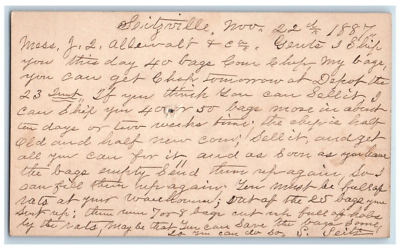 Seitzville, Nov. 22d 1887,
Mess, J. Q. Allewalt & Co, Gents I Ship
you this day 40 bags Corn Chop my bags,
you can get Chop tomorrow at Depot the
23 Inst, If you think You can Sell it, I
can Ship you 40 or 50 bags more in about
ten days or two weeks time: the chop is half
Old and half new corn; Sell it, and get
all you can for it, and as Soon as you have
the bags empty Send them up again, So I
can fill them up again; You must be full of
rats at your Warehouse; Out of the 25 bags you
Sent up; there were 7 or 8 bags cut up full of holes
by the rats, maybe that You can Save the bags Some,
So you can do So, S. Seitz